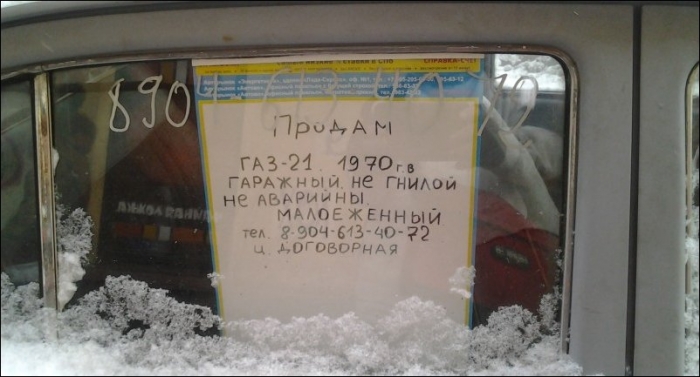 СПРАВКА-СЧЕТ
8904 613 40 72
ПРОДАМ
ГАЗ-21. 1970 г.в
ГАРАЖНЫЙ. НЕ ГНИЛОЙ
НЕ АВАРИЙНЫ.
МАЛОЕЖЕННЫЙ
тел. 8-904-613-40-72
ц. ДОГОВОРНАЯ